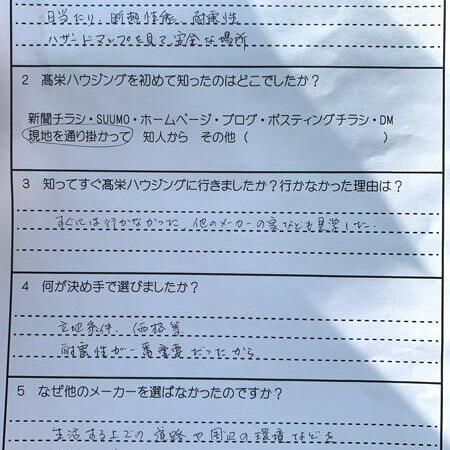 日当たり、断熱性能、耐震性
ハザードマップを見て安全な場所
2 髙栄ハウジングを初めて知ったのはどこでしたか？
新聞チラシ・SUUMO・ホームページ・ブログ・ポスティングチラシ・DM
現地を通り掛かって 知人から その他（ ）
3 知ってすぐ髙栄ハウジングに行きましたか？行かなかった理由は？
すぐには行かなかった、他のメーカーの家なども見学した。
4 何が決め手で選びましたか？
立地条件、価格等
耐震性が一番重要だったから
5 なぜ他のメーカーを選ばなかったのですか？
生活する上での道路や周辺の環境などを